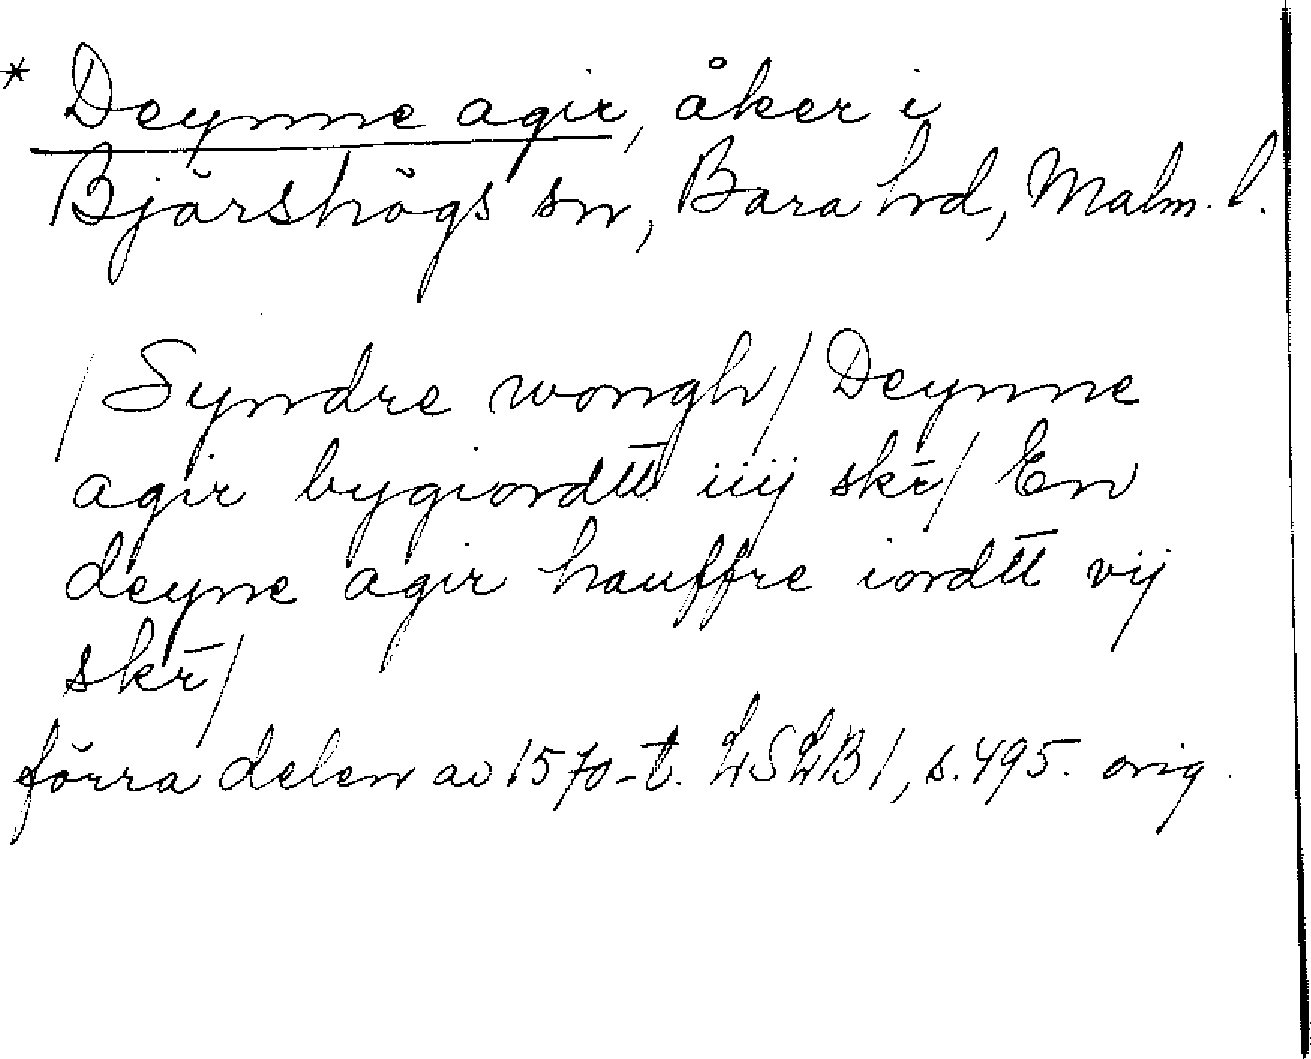 * Deynne agir, åker i
Bjärshögs sn, Bara hd, Malm. l.
/ Syndre wongh / Deynne
agir bygiordtt iiij skr̄ / En
deyne agir hauffre iordtt vij
skr̄ /
förra delen av 1570-t. LSLB 1, s. 495. orig.